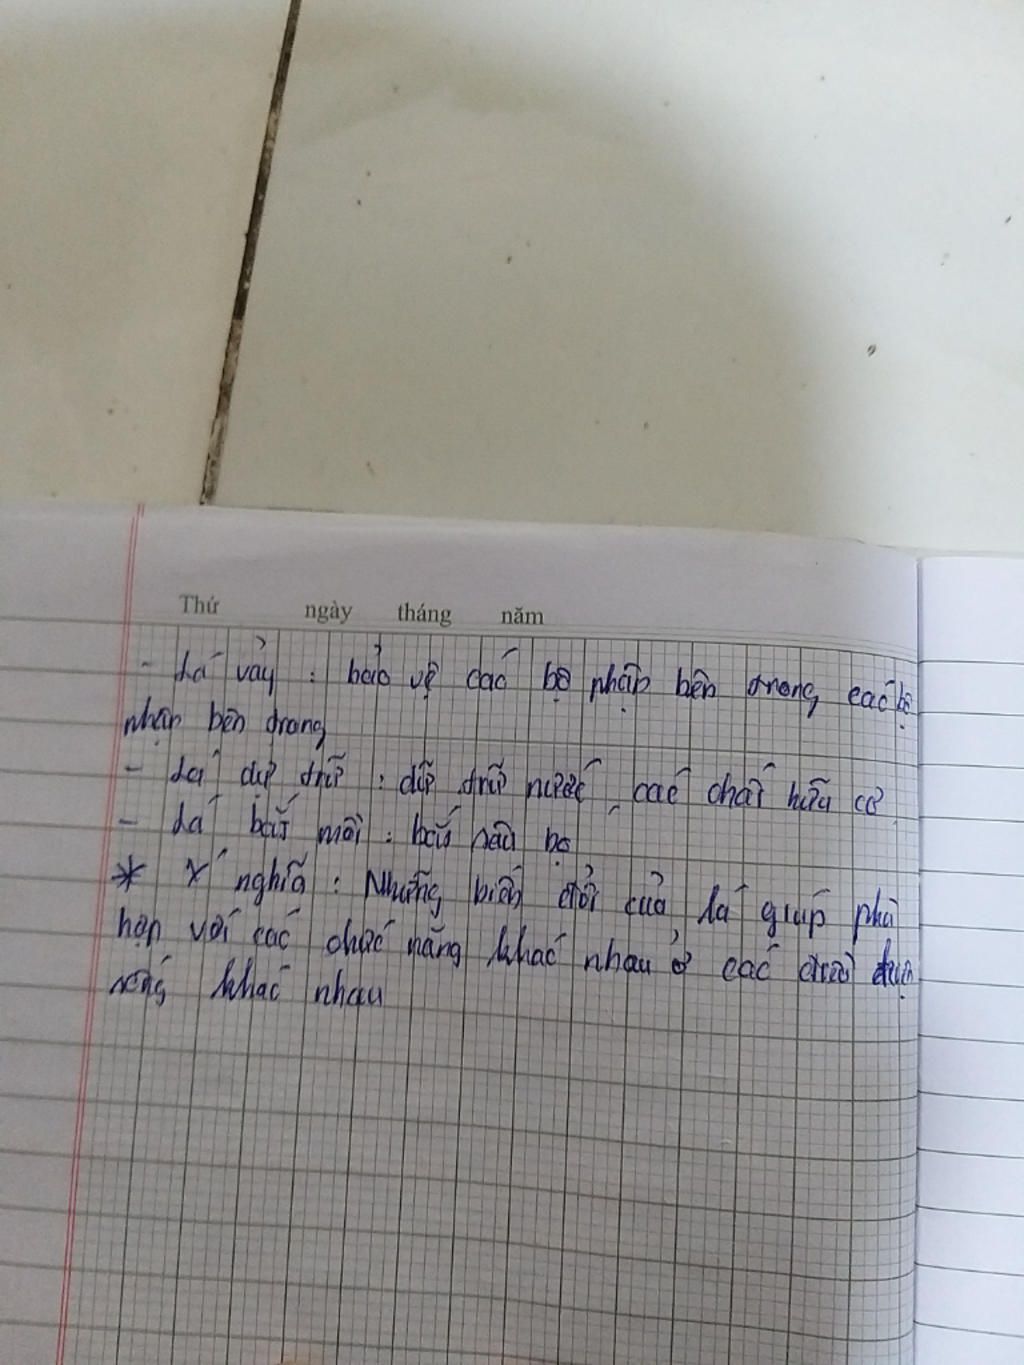 Thứ ngày tháng năm
- Lá vảy : bảo vệ các bộ phận bên trong các bộ
phận bên trong
- Lá dự trữ : dữ trữ nước, các chất hữu cơ
- Lá bắt mồi : bắt sâu bọ
* Ý nghĩa : Những biến đổi của lá giúp phù
hợp với các chức năng khác nhau ở các
sống khác nhau